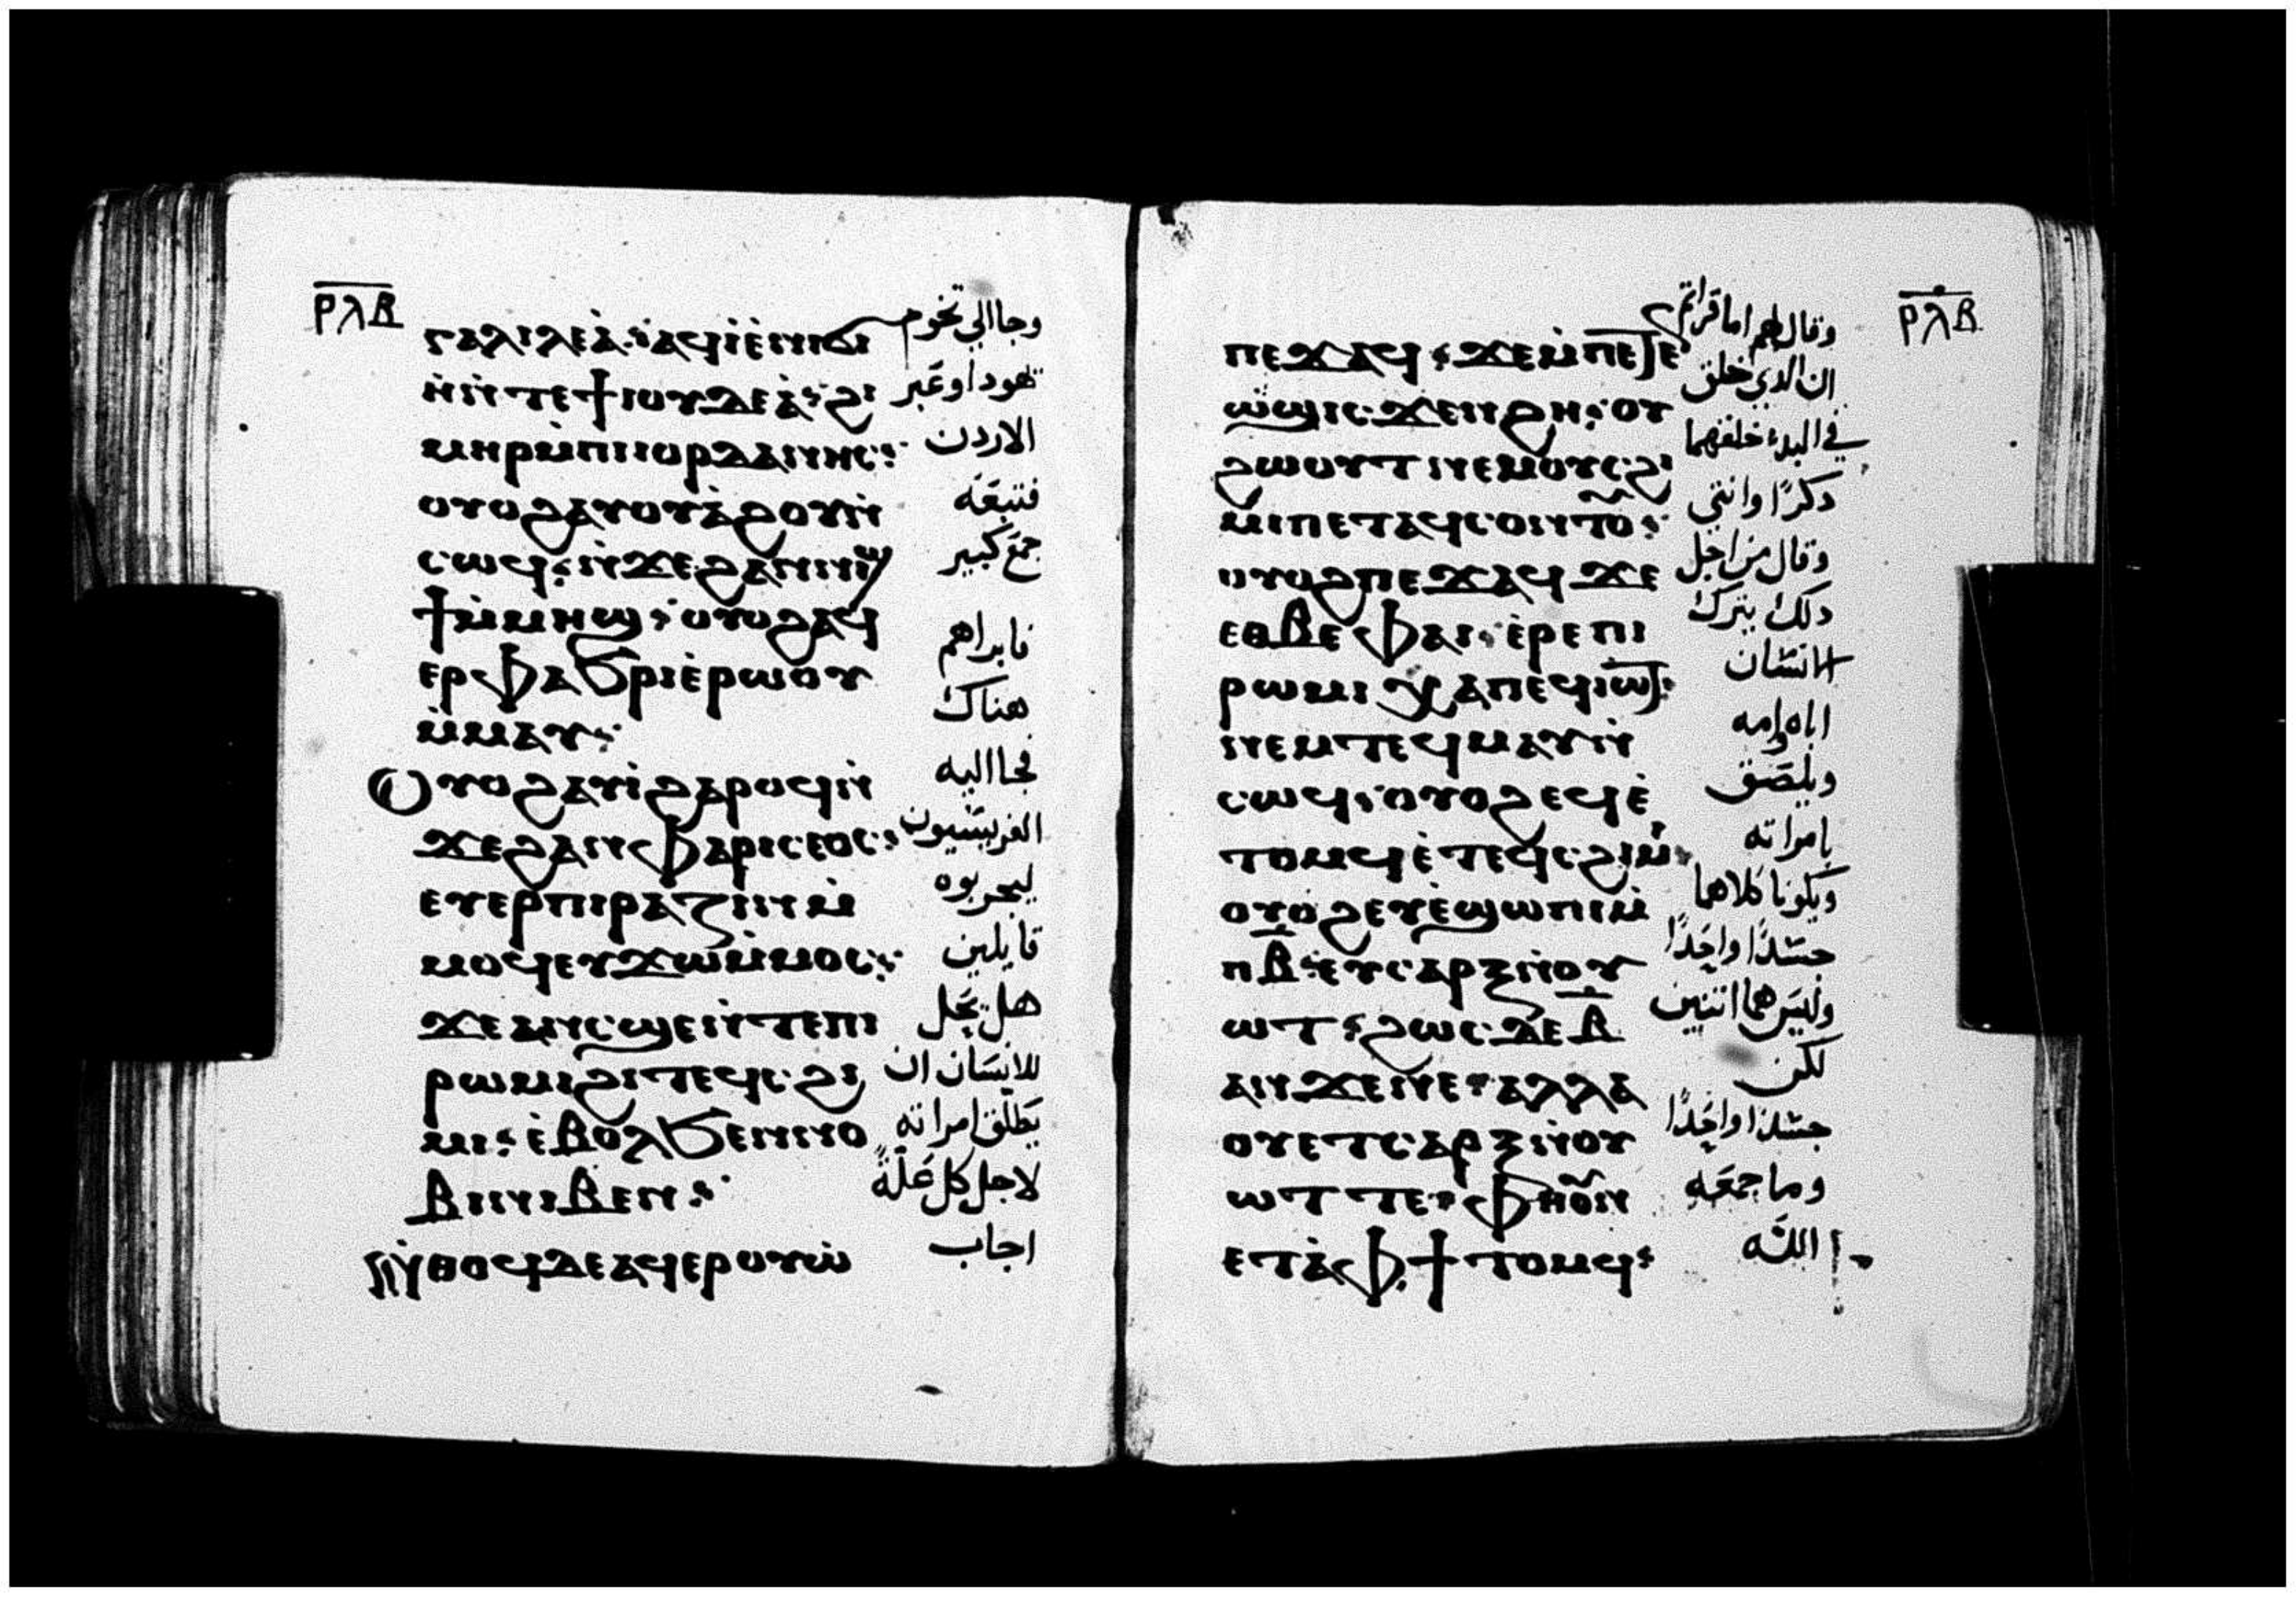 ⲣⲗⲃ
ⲅⲁⲗⲓⲗⲉⲁ̀ ⲁϥⲓ̀ⲉ̀ⲛⲓϭⲓ
ⲏ̀ⲛ̀ⲧⲉϯⲓⲟⲩⲇⲉⲁ̀ ϩⲓ
ⲙⲏⲣⲙ̀ⲡⲓⲓⲟⲣⲇⲁⲛⲏⲥ
ⲟⲩⲟϩⲁⲩⲟⲩⲁ̀ϩⲟⲩⲛ̀
ⲥⲱϥ ⲛ̀ϫⲉϩⲁⲛⲛⲓϣ
ϯⲙ̀ⲙⲏϣ ⲟⲩⲟϩⲁϥ
ⲉⲣⲫⲁϧⲣⲓⲉ̀ⲣⲱⲟⲩ
ⲙ̀ⲙⲁⲩ
ⲟⲩⲟϩⲁⲩⲓ̀ϩⲁⲣⲟϥⲛ̀
ϫⲉϩⲁⲛⲫⲁⲣⲓⲥⲉⲟⲥ
ⲉⲩⲉⲣⲡⲓⲣⲁⲍⲓⲛⲙ̀
ⲙⲟϥⲉⲩϫⲱⲙ̀ⲙⲟⲥ
ϫⲉⲁⲛⲥϣⲉⲛ̀ⲧⲉⲡⲓ
ⲣⲱⲙⲓϩⲓⲧⲉϥⲥϩⲓ
ⲙⲓ ⲉ̀ⲃⲟⲗϧⲉⲛⲛⲟ
ⲃⲓⲛⲓⲃⲉⲛ
ⲛ̀ⲑⲟϥⲇⲉⲁϥⲉⲣⲟⲩⲱ̀
وجاالي تخوم
يهودا وعبر
الاردن
فتبعه
جمع كبير
فابراهم
هناك
فجااليه
الفريسيون
ليجربوه
قايلين
هل يحل
للانسان ان
يطلق امراته
لاجل كل علة
اجاب
ⲣⲗⲃ
ⲡⲉϫⲁϥ ϫⲉⲙ̀ⲡⲉⲧⲉ
ⲱ̀ϣⲓⲥ ϫⲉⲛϩⲏ ⲟⲩ
ϩⲱⲟⲩⲧⲛⲉⲙⲟⲩⲥϩⲓ
ⲙⲓⲡⲉⲧⲁϥⲥⲟⲛⲧⲟ
ⲟⲩⲟϩⲡⲉϫⲁϥϫⲉ
ⲉⲑⲃⲉⲫⲁⲓ ⲉ̀ⲣⲉⲡⲓ
ⲣⲱⲙⲓⲭⲁⲡⲉϥⲓⲱⲧ
ⲛⲉⲙⲧⲉϥⲙⲁⲩⲛ̀
ⲥⲱϥ ⲟⲩⲟϩⲉϥⲉ̀
ⲧⲟⲙϥⲉ̀ⲧⲉϥⲥϩⲓⲙ̀
ⲟⲩⲟϩⲉⲩⲉ̀ϣⲱⲡⲓⲙ̀
ⲡⲃ ⲉⲩⲥⲁⲣⲝⲛ̀ⲟⲩ
ⲱⲧ ϩⲱⲥⲇⲉⲃ
ⲁⲛϫⲉⲛⲉ ⲁⲗⲗⲁ
ⲟⲩⲉⲧⲥⲁⲣⲝⲛ̀ⲟⲩ
ⲱⲧⲧⲉ ⲫⲏⲟⲛ
ⲉⲧⲁ̀ⲫϯⲧⲟⲙϥ
وقال لهم اما قراتم
ان الدي خلق
في البدء خلقهما
دكرًا وانتي
وقال من اجل
دلك يترك
الانسان
اباه وامه
ويلصق
بامراته
ويكونا كلاهما
جسدًا واحدًا
وليس هما اتنين
لكن
جسدًا واحدًا
وما جمعه
الله